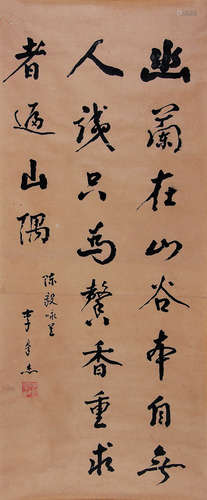 幽蘭在山谷本自無
人識只為馨香重求
者遍山隅
陈毅咏兰